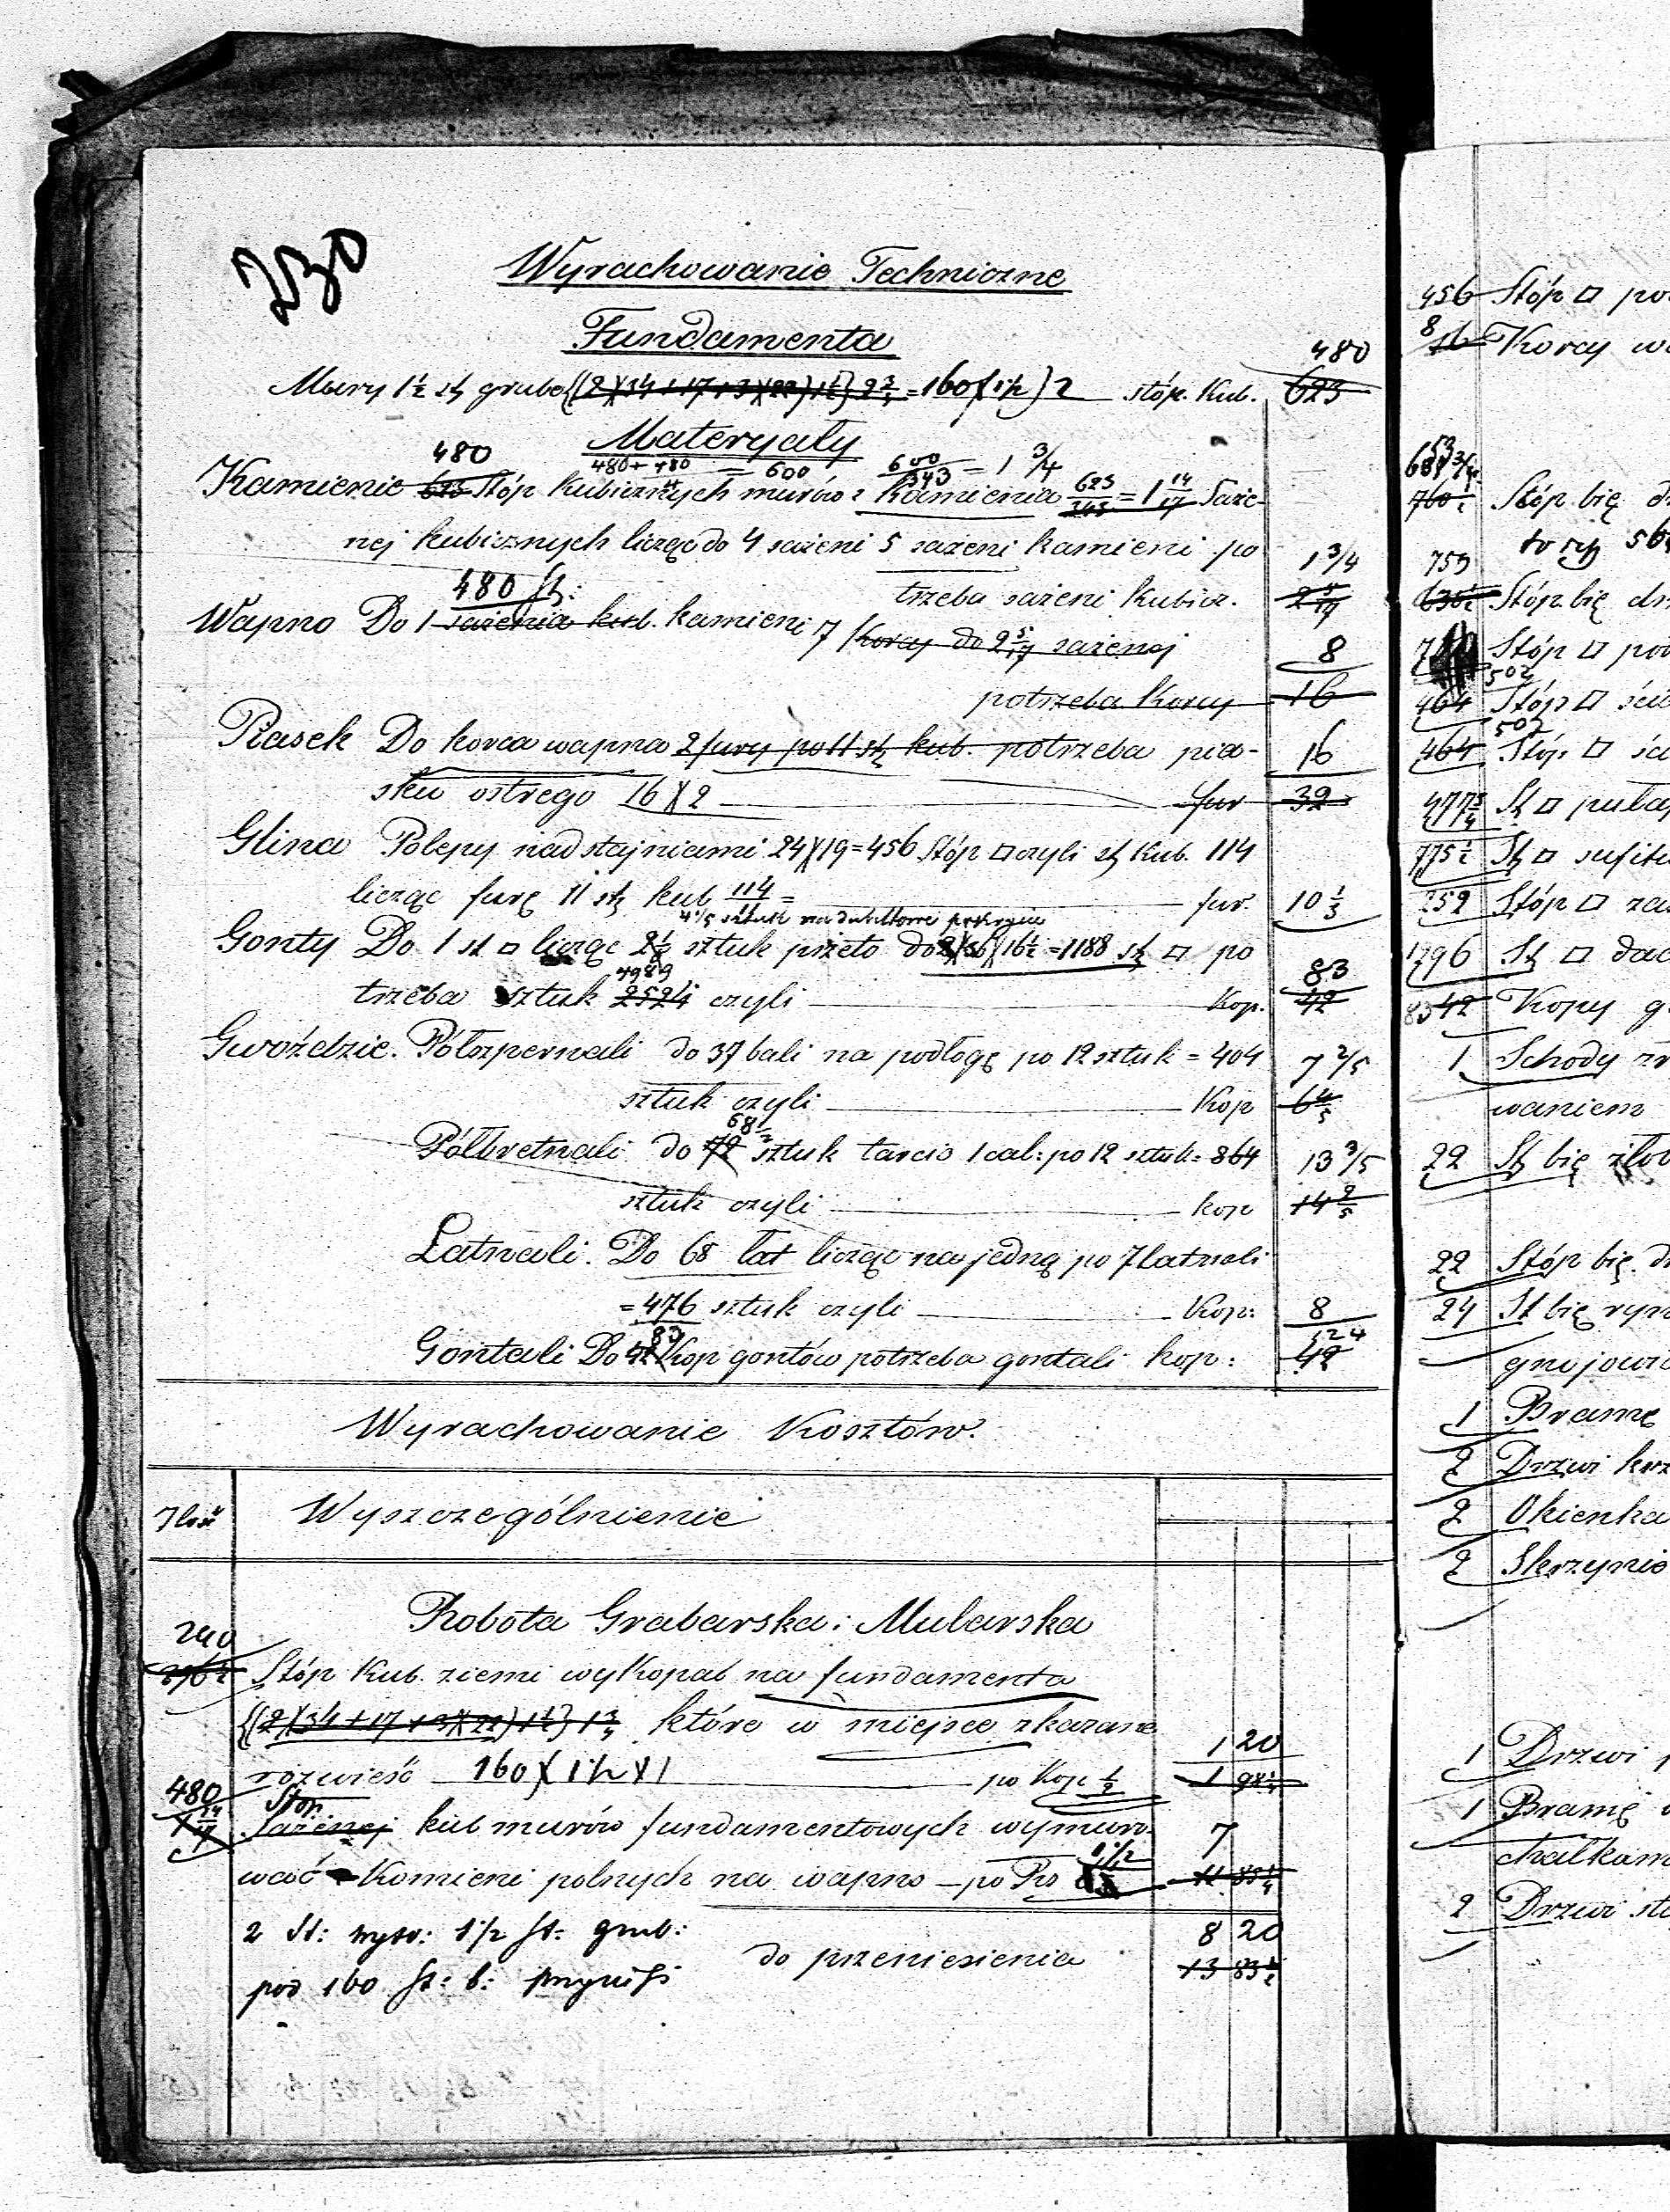 230
Wyrachowanie Techniczne
Fundamenta
480
Mury 1½ st grube {(2)(34+17+3)(22)1½} 2¾ = 160(1½)2 stóp. Kub. 623
Materyały
480 480+480/4 = 600 600/343 = 1 3/4
Kamienie 623 Stóp kubicznych murów: kamienia 623/343 = 1 14/17 Saże-
nej kubicznych licząc do 4 sażeni 5 sażeni kamieni po
1 3/4
480 st:
trzeba sażeni kubicz. 2 5/17
Wapno Do 1 sażenia kub. kamieni 7 Korcy do 2 5/17 sażenej
8
potrzeba Korcy 16
Piasek Do korca wapna 2 fury po 11 st kub. potrzeba pia- 16
sku ostrego 16)(2 fur 32
Glina Polepy nad stajniami 24)(19=456 Stóp □ czyli st Kub. 114
licząc furę 11 st kub 114/11 = fur. 10 1/3
4 1/5 sztuk na dubeltowe pokrycie
Gonty Do 1 st □ licząc 2 1/8 sztuk przeto do 2)(36)(16½=1188 st □ po
4989 83
trzeba sztuk 2524 czyli Kop. 42
Gwoździe. Półszpernali do 37 bali na podłogę po 12 sztuk = 404 7 2/5
sztuk czyli Kop 6 4/5
68½
Półbretnali do 72 sztuk tarcic 1 cal: po 12 sztuk = 864 13 3/5
sztuk czyli kop 14 2/5
Łatnali. Do 68 łat licząc na jedną po 7 łatnali
= 476 sztuk czyli Kop: 8
83 124
Gontali Do 42 Kop gontów potrzeba gontali kop: 42
Wyrachowanie Kosztów.
Ilość Wyszczególnienie
Robota Grabarska i Mularska
240
Stóp Kub. ziemi wykopać na fundamenta
{(2)(34+17+3)(22)1½} 1¾ które w miejsce zkazane
1 20
rozwieść 160)(1½)(1 po Kop ½ 1 98¼
480 Stóp.
1 14/17 Sażenej kub murów fundamentowych wymuro-
7
1½
wać Kamieni polnych na wapno – po Rs
2 St: wyso: 1½ st: grub:
8 20
do przeniesienia 13 83½
pod 160 st: b:
456 Stóp □
8 16 Korcy
760½ Stóp bię
753
Stóp bię
Stóp □
502
464 Stóp □
502
464 Stóp □
477¾ St □
775½ St □
252 Stóp □
1296 St □
83 42 Kopy
1 Schody
waniem
22 St bię
22 Stóp bię.
24 St bię
1 Bramę
2 Drzwi
2 Okienka
2 Skrzynie
1 Drzwi
1 Bramę
2 Drzwi